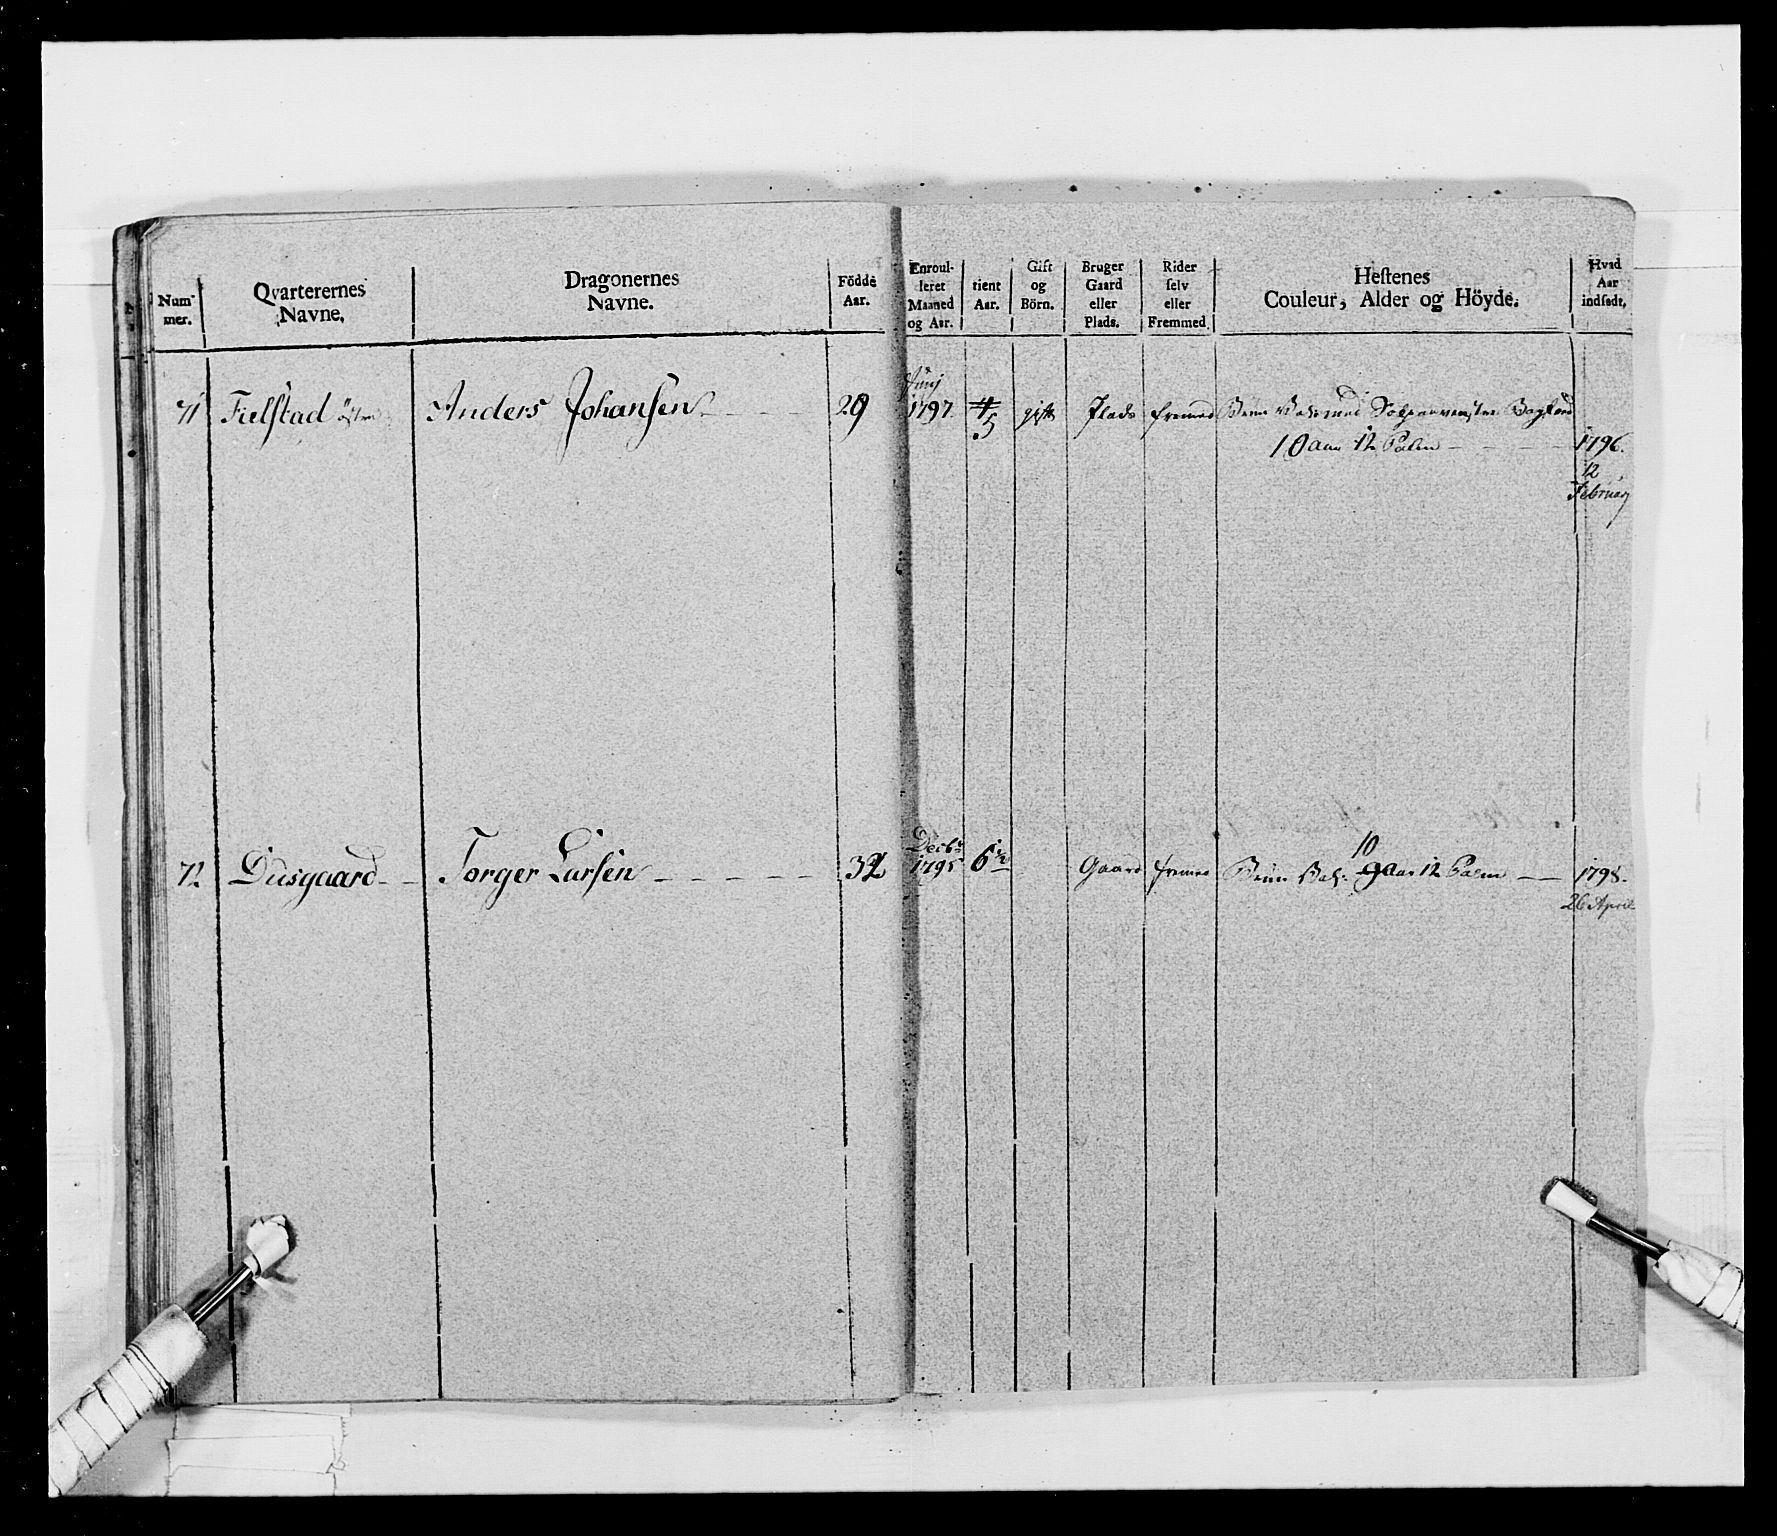 Num-
mer.
Qvarterernes
Navne.
Dragonernes
Navne.
Födde
Aar.
Enroul-
leret
Maaned
og Aar.
tient
Aar.
Gift
og
Börn.
Bruger
Gaard
eller
Plads.
Rider
selv
eller
Fremmed.
Hestenes
Couleur, Alder og Höyde.
Hvad
Aar
indsadt.
71 Fielstad östre Anders Johansen 29 Junj 1797. 4 5 gift Plads fremed Brun
10 aar 12 Palm 1796.
12
Februarj
72 Diisgaard Torger Larsen 32 Decbr 1795 6 1/2 Gaard fremed Brun 10
9 aar 12 Palm 1798.
26 April